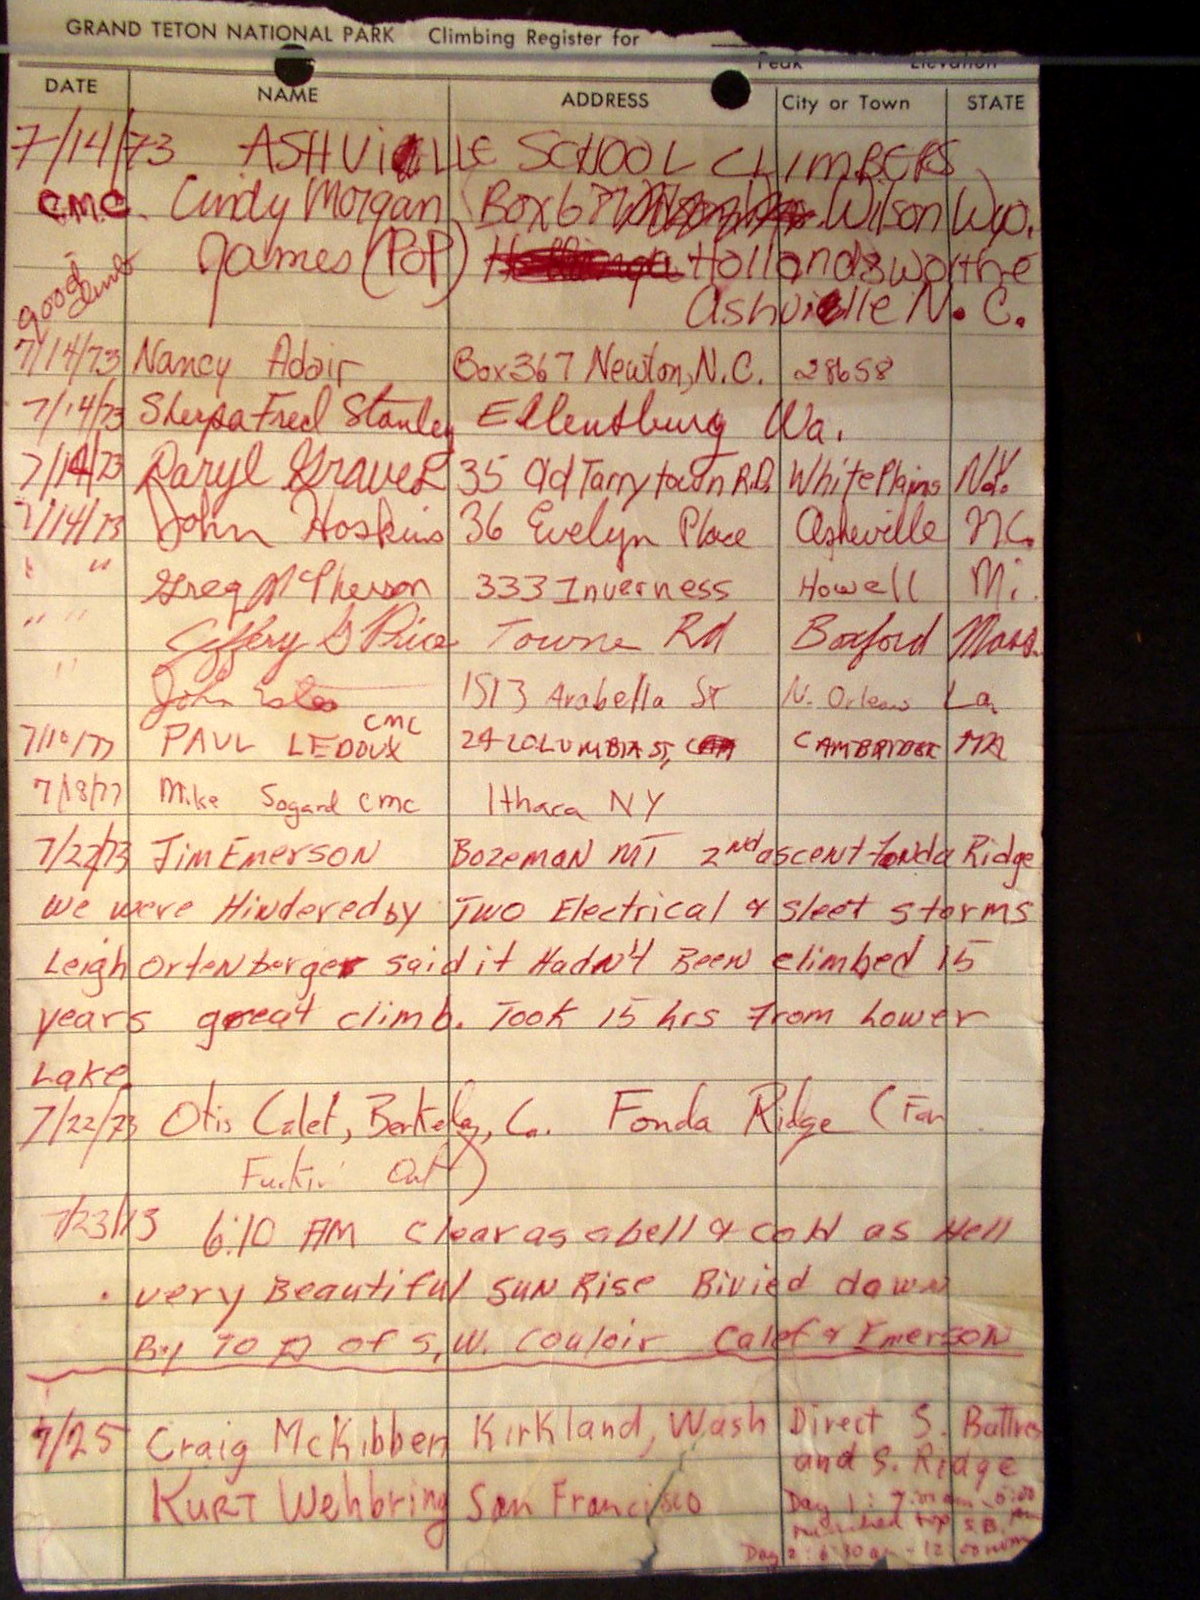 GRAND TETON NATIONAL PARK Climbing Register for
Peak Elevation
DATE NAME ADDRESS City or Town STATE
7/14/73 ASHVILLE SCHOOL CLIMBERS
C.M.C. Cindy Morgan (Box 67 Wilson Wyo.
good climb James (POP) Hollandsworthe
Ashville N.C.
7/14/73 Nancy Adair Box 367 Newton, N.C. 28658
7/14/73 Sherpa Fred Stanley Ellensburg Wa.
7/14/73 Daryl Graves 35 Old Tarrytown RD. White Plains N.Y.
7/14/73 John Hoskins 36 Evelyn Place Asheville NC.
" " Greg McPherson 333 Inverness Howell Mi.
" " Jeffery G Price Towne Rd Boxford Mass.
" John 1513 Arabella St N. Orleans La.
7/10/77 PAUL LEDOUX CMC 24 COLUMBIA ST, CAMBRIDGE MA
7/18/77 Mike Sogard CMC Ithaca NY
7/22/73 Jim Emerson Bozeman MT 2nd ascent Fonda Ridge
we were Hindered by Two Electrical & sleet storms
Leigh Ortenberger said it Hadn't Been climbed 15
years great climb. Took 15 hrs From Lower
Lake
7/22/73 Otis Calef, Berkeley, Ca. Fonda Ridge (Far
Fuckin' Out)
7/23/73 6:10 AM Clear as a bell & cold as Hell
very Beautiful sun Rise Bivied down
By TO of S.W. Couloir Calef & Emerson
7/25 Craig McKibben Kirkland, Wash Direct S. Buttress
and S. Ridge
Kurt Wehbring San Francisco Day 1: 7:00 am - 5:00
reached top S.B. pm
Day 2: 6:30 am - 12:00 noon